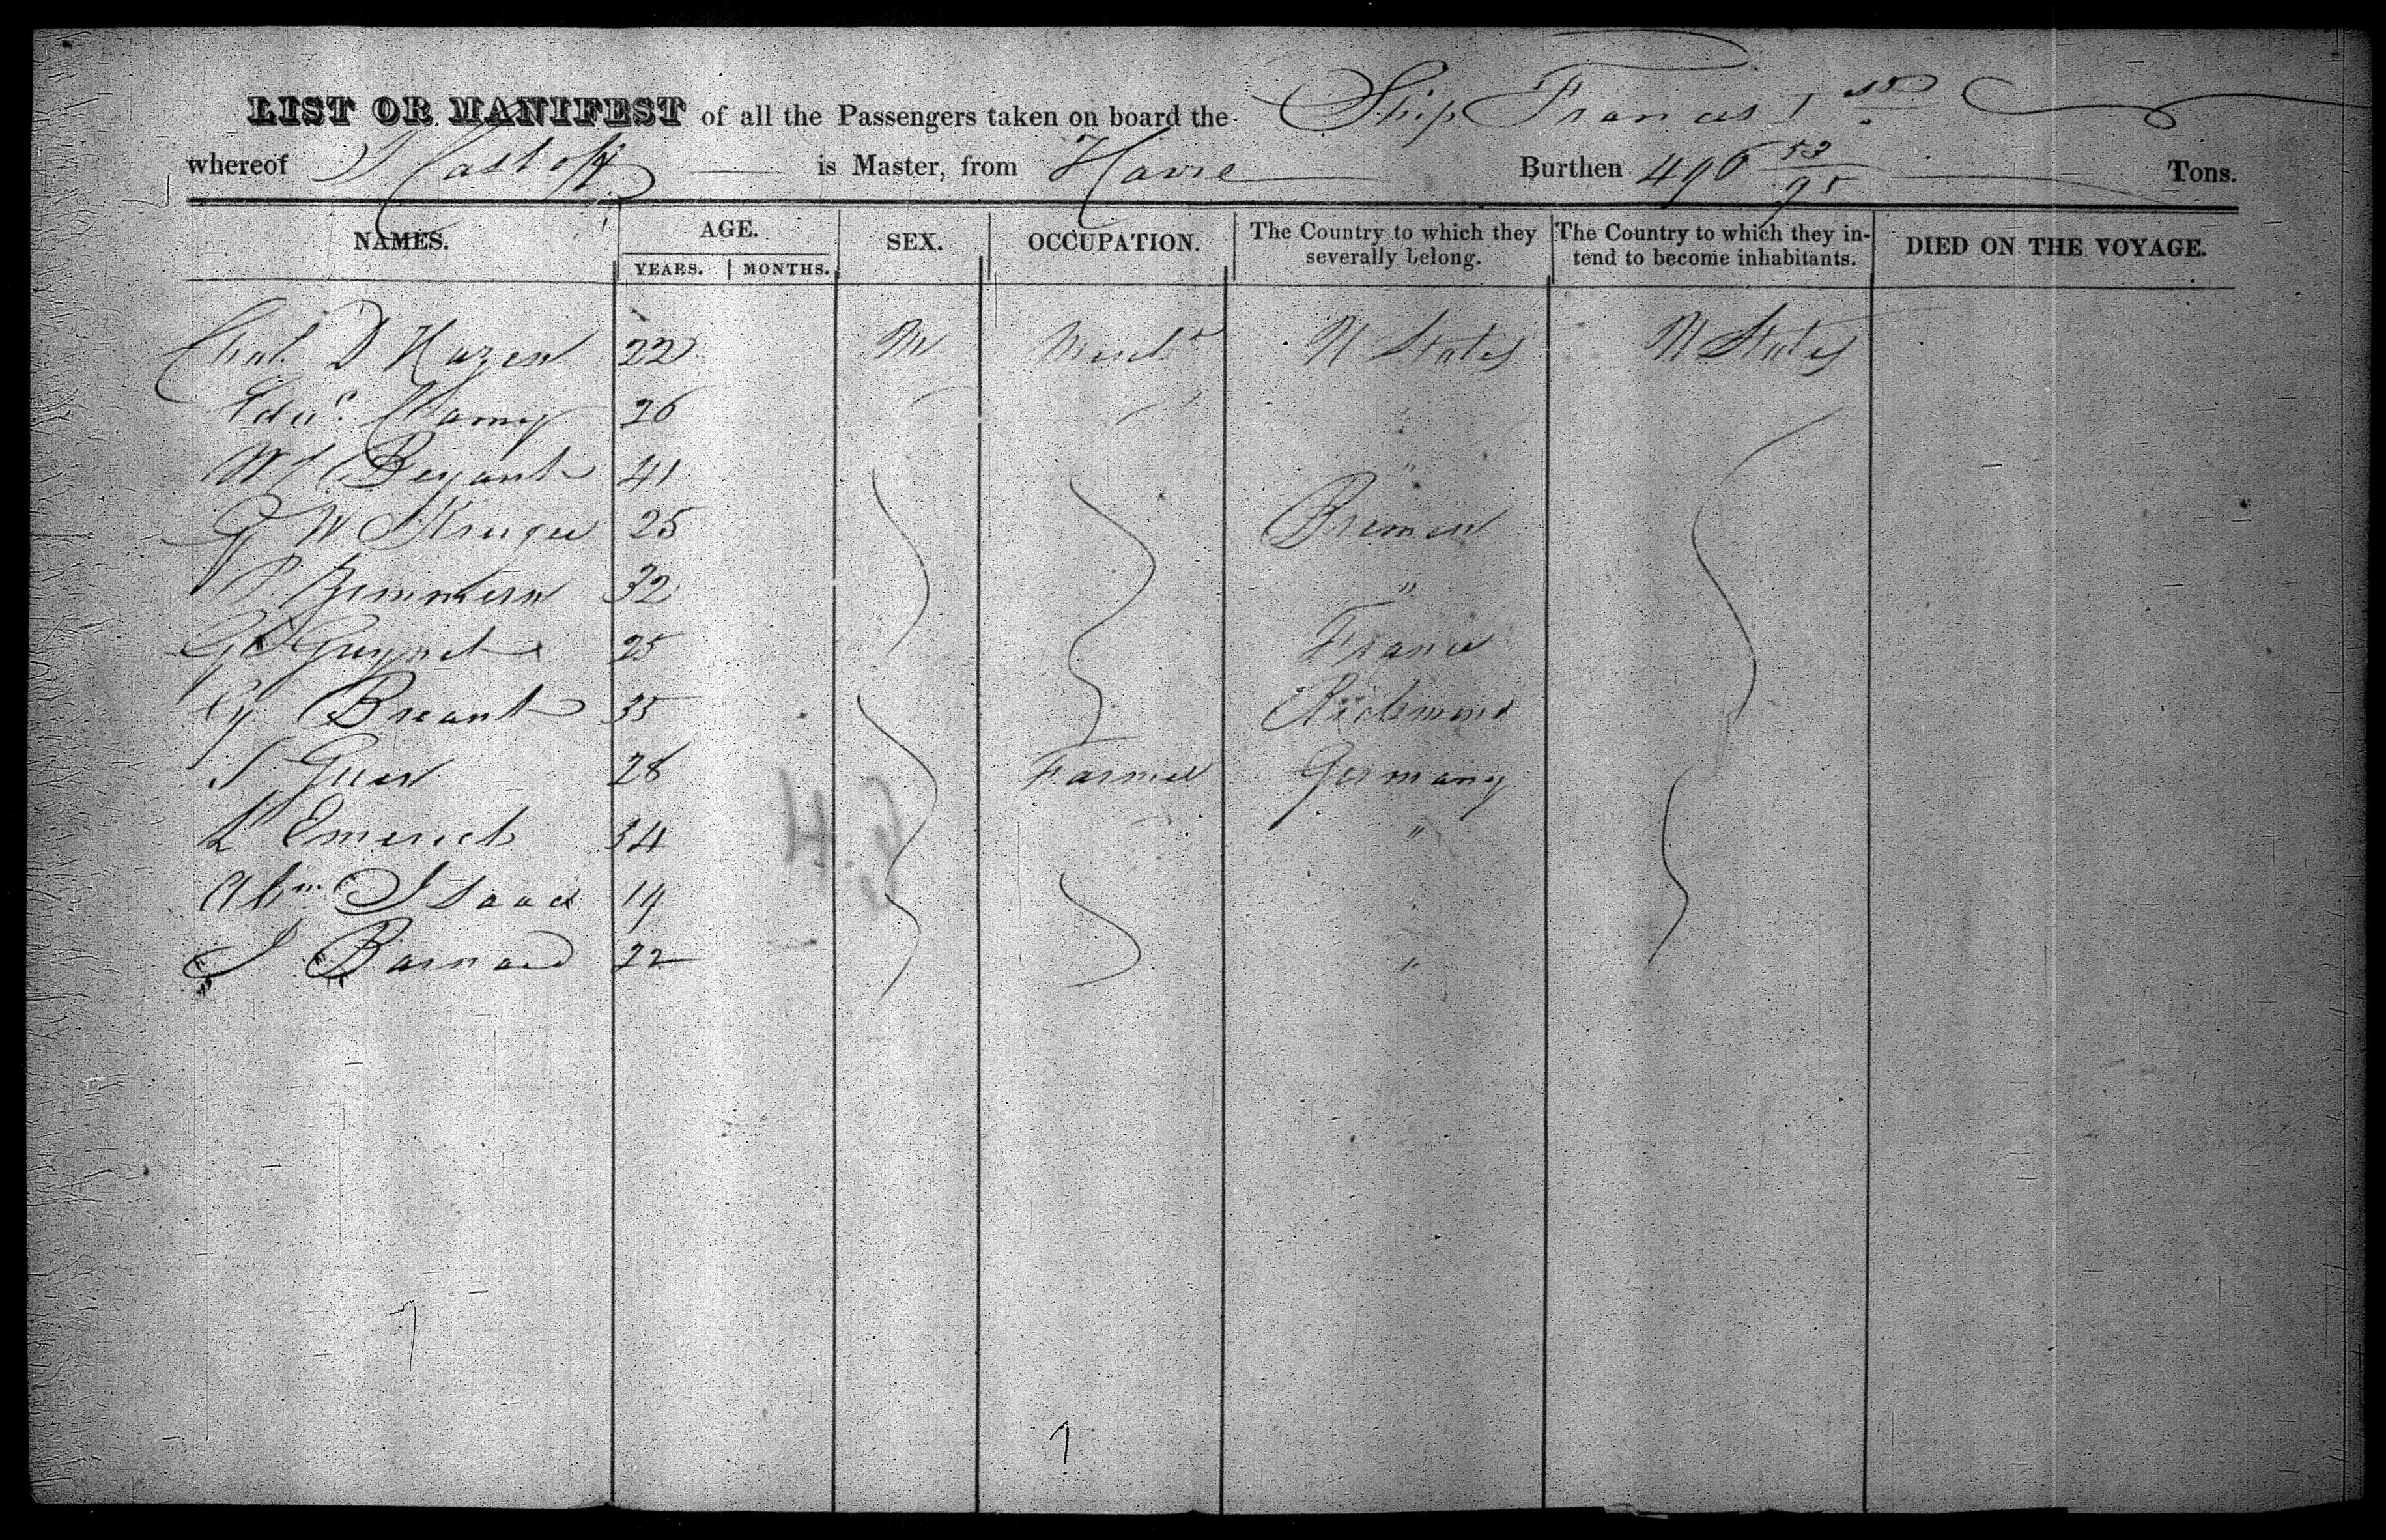 LIST OR MANIFEST of all the Passengers taken on board the Ship Francis 1st
whereof is Master, from Havre Burthen 496 53/95 Tons.
NAMES. AGE. SEX. OCCUPATION. The Country to which they severally belong. The Country to which they intend to become inhabitants. DIED ON THE VOYAGE.
YEARS. MONTHS.
D Hazen 22 M Mercht U States U States
26 "
Bryant 41 "
G W Kruger 25 Bremen
P. Zimmern 32 "
25 France
G Breant 35 Richmond
S Guen 28 Farmer Germany
L Emerich 34 "
Abm Isaacs 19 "
J Barnard 22 "